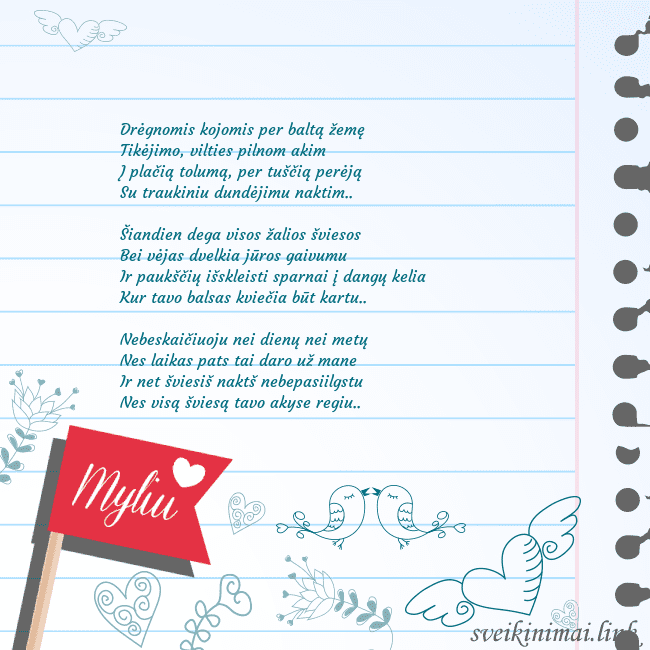 Drėgnomis kojomis per baltą žemę
Tikėjimo, vilties pilnom akim
Į plačią tolumą, per tuščią perėją
Su traukiniu dundėjimu naktim..
Šiandien dega visos žalios šviesos
Bei vėjas dvelkia jūros gaivumu
Ir paukščių išskleisti sparnai į dangų kelia
Kur tavo balsas kviečia būt kartu..
Nebeskaičiuoju nei dienų nei metų
Nes laikas pats tai daro už mane
Ir net šviesiš naktš nebepasiilgstu
Nes visą šviesą tavo akyse regiu..
Myliu
sveikinimai.link